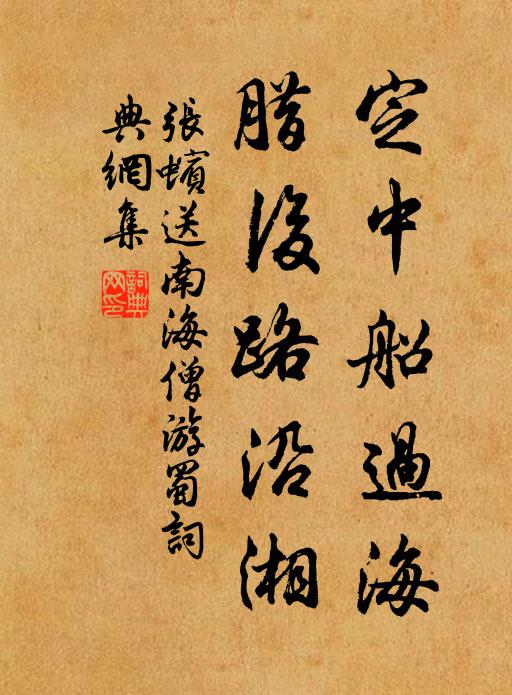 定中船過海
腊後路沿湘
張蠙送南海僧游蜀詞
典網集
詞典網印